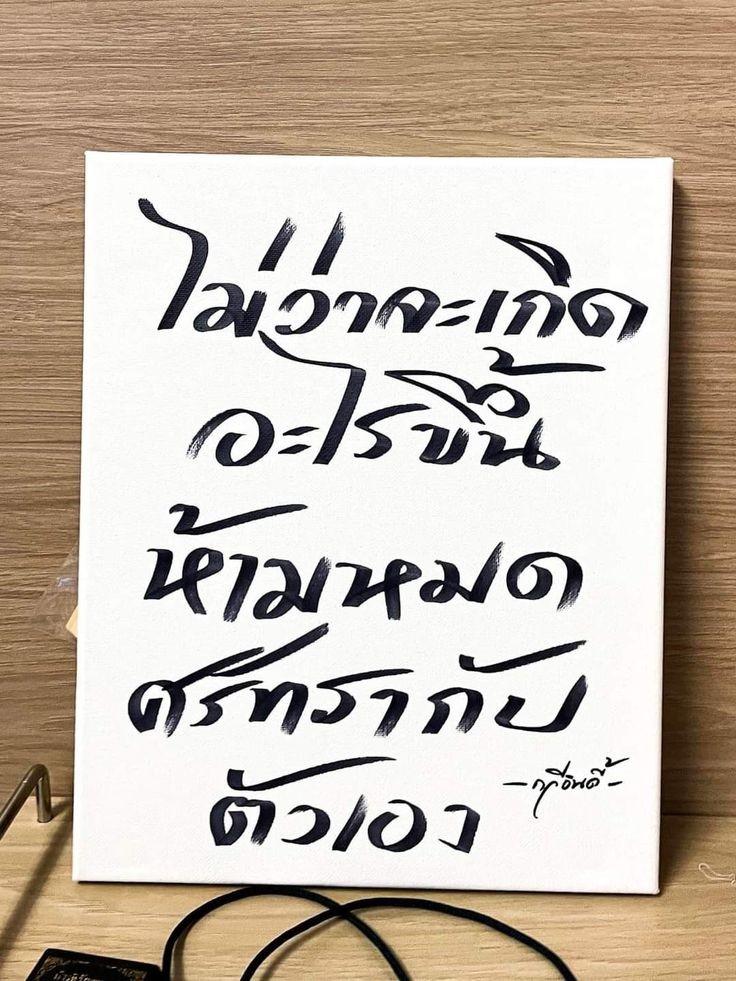 ไม่ว่าจะเกิด
อะไรขึ้น
ห้ามหมด
ศรัทธากับ
ตัวเอง